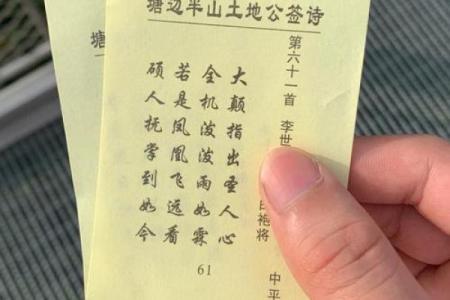 塘边半山土地公签诗
第六十一首 李世
袍将
中平
大颠指出圣人心
全机泼泼雨如霖
若是凤凰飞远看
硕人抚掌到如今
61
塘